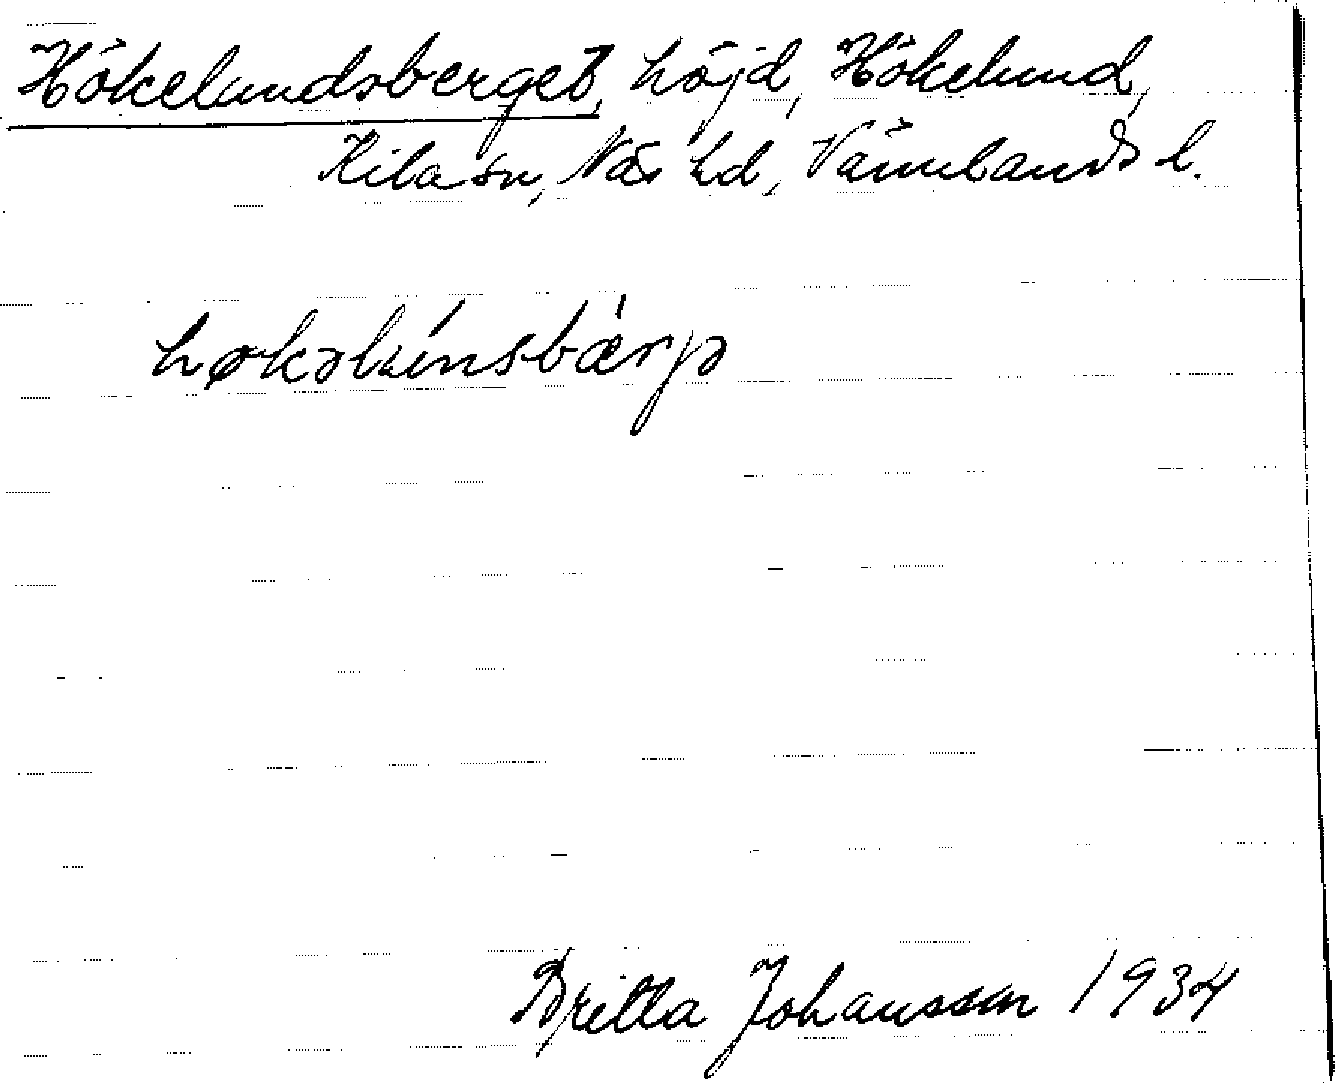 Hökelundsberget, höjd, Hökelund,
Kila sn, Näs hd, Värmlands l.
høkəlu̇́nsbæ̀rjə
Britta Johansson 1934